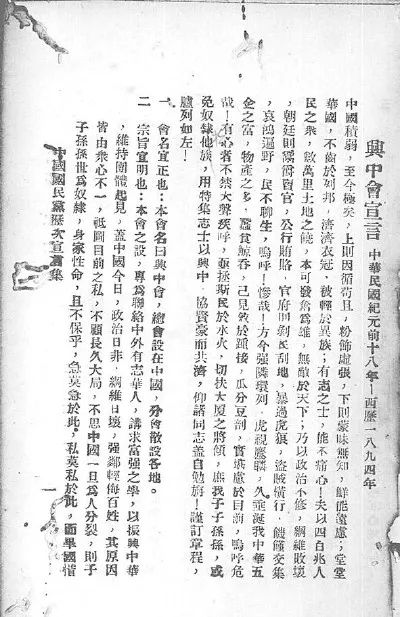 興中會宣言 中華民國紀元前十八年—西歷一八九四年
中國積弱,至今極矣,上則因循苟且,粉飾虛張,下則蒙昧無知,鮮能遠慮;堂堂
華國,不齒於列邦,濟濟衣冠,被輕於異族;有志之士,能不痛心!夫以四百兆人
民之衆,數萬里土地之饒,本可發奮爲雄,無敵於天下;乃以政治不修,綱維敗壞
,朝廷則鬻爵賣官,公行賄賂,官府則剝民刮地,暴過虎狼,盜賊橫行,饑饉交集
,哀鴻遍野,民不聊生,嗚呼!慘哉!方今強隣環列,虎視鷹瞵,久垂涎我中華五
金之富,物產之多,蠶食鯨吞,已見效於踵接,瓜分豆剖,實堪慮於目前,嗚呼危
哉!有心者不禁大聲疾呼,亟拯斯民於水火,切扶大廈之將傾,庶我子子孫孫,或
免奴隸他族,用特集志士以興中,協賢豪而共濟,仰諸同志盍自勉旃!謹訂章程,
臚列如左!
一、會名宜正也:本會名曰興中會,總會設在中國,分會散設各地。
二 宗旨宜明也:本會之設,專爲聯絡中外有志華人,講求富強之學,以振興中華
,維持團體起見,蓋中國今日,政治日非,綱維日壞,強鄰輕侮百姓,其原因
皆由衆心不一,祗圖目前之私,不顧長久大局,不思中國一旦爲人分裂,則子
子孫孫世爲奴隸,身家性命,且不保乎,急莫急於此,私莫私於此,而舉國憒
中國國民黨歷次宣言集
一